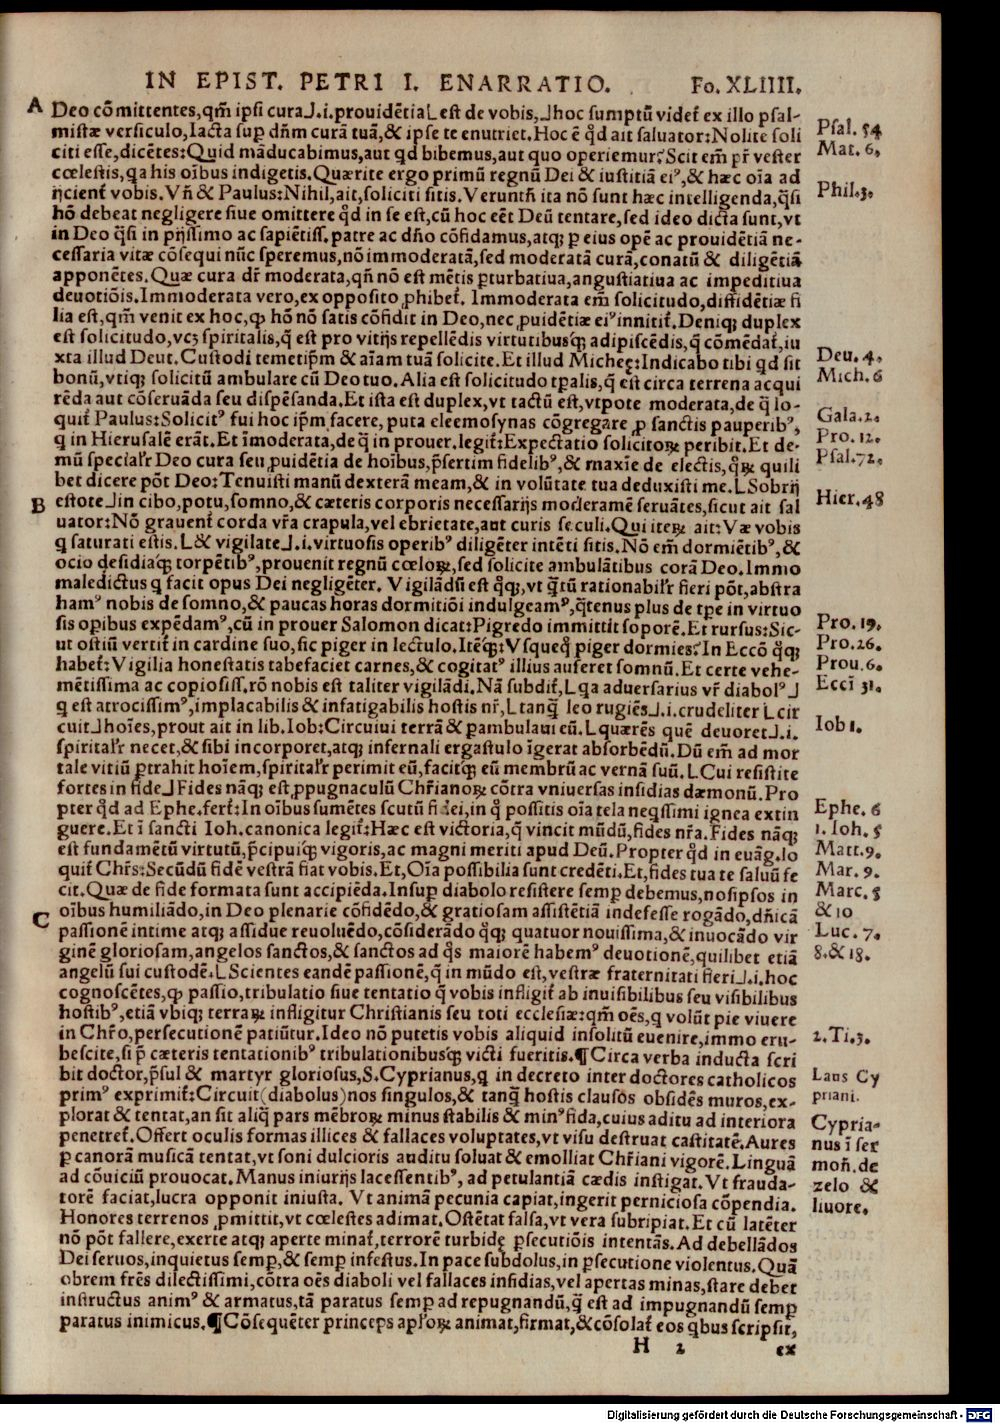 IN EPIST. PETRI I. ENARRATIO. Fo. XLIIII.
A Deo cōmittentes, qm̄ ipsi cura⅃.i.prouidētia⅃ est de vobis,⅃hoc sumptū videt᷑ ex illo psal-
mistæ versiculo, Iacta sup dn̄m curā tuā, & ipse te enutriet. Hoc ē qd̄ ait saluator: Nolite soli
citi esse, dicētes: Quid māducabimus, aut qd bibemus, aut quo operiemur? Scit em̄ pr̄ vester
cœlestis, qa his oībus indigetis. Quærite ergo primū regnū Dei & iustitiā ei⁹, & hæc oīa ad
ijcient᷑ vobis. Vn̄ & Paulus: Nihil, ait, soliciti sitis. Veruntn̄ ita nō sunt hæc intelligenda, q̄si
hō debeat negligere siue omittere qd̄ in se est, cū hoc eēt Deū tentare, sed ideo dicta sunt, vt
in Deo q̄si in pijssimo ac sapiētiss. patre ac dn̄o cōfidamus, atqꝫ ꝑ eius opē ac prouidētiā ne-
cessaria vitæ cōsequi nūc speremus, nō immoderatā, sed moderatā curā, conatū & diligētiā
apponētes. Quæ cura dr̄ moderata, qn̄ nō est mētis ꝑturbatiua, angustiatiua ac impeditiua
deuotiōis. Immoderata vero, ex opposito ꝓhibet᷑. Immoderata em̄ solicitudo, diffidētiæ fi
lia est, qm̄ venit ex hoc, ꝙ hō nō satis cōfidit in Deo, nec ꝓuidētiæ ei⁹ innitit᷑. Deniqꝫ duplex
est solicitudo, vcꝫ spiritalis, q̄ est pro vitijs repellēdis virtutibusqꝫ adipiscēdis, q̄ cōmēdat᷑, iu
xta illud Deut. Custodi temetip̄m & aīam tuā solicite. Et illud Micheę: Indicabo tibi qd sit
bonū, vtiqꝫ solicitū ambulare cū Deo tuo. Alia est solicitudo tꝑalis, q̄ est circa terrena acqui
rēda aut cōseruāda seu dispēsanda. Et ista est duplex, vt tactū est, vtpote moderata, de q̄ lo-
quit᷑ Paulus: Solicit⁹ fui hoc ip̄m facere, puta eleemosynas cōgregare ꝓ sanctis pauperib⁹,
q in Hierusalē erāt. Et īmoderata, de q̄ in prouer. legit᷑: Expectatio solicitoꝝ peribit. Et de-
mū special'r Deo cura seu ꝓuidētia de hoībus, p̄sertim fidelib⁹, & maxīe de electis, qꝝ quili
bet dicere pōt Deo: Tenuisti manū dexterā meam, & in volūtate tua deduxisti me. ⅃Sobrij
B estote⅃in cibo, potu, somno, & cæteris corporis necessarijs moderamē seruātes, sicut ait sal
uator: Nō grauent᷑ corda vr̄a crapula, vel ebrietate, aut curis seculi. Qui iteꝝ ait: Væ vobis
q saturati estis. ⅃& vigilate⅃.i.virtuosis operib⁹ diligēter intēti sitis. Nō em̄ dormiētib⁹, &
ocio desidiaqꝫ torpētib⁹, prouenit regnū cœloꝝ, sed solicite ambulātibus corā Deo. Immo
maledictus q facit opus Dei negligēter. Vigilādū est qꝗꝫ, vt q̄tū rationabil'r fieri pōt, abstra
ham⁹ nobis de somno, & paucas horas dormitiōi indulgeam⁹, q̄tenus plus de tꝑe in virtuo
sis oꝑibus expēdam⁹, cū in prouer Salomon dicat: Pigredo immittit soporē. Et rursus: Sic-
ut ostiū vertit᷑ in cardine suo, sic piger in lectulo. Itēqꝫ: Vsqueq̊ piger dormies? In Eccō q̊qꝫ
habet᷑: Vigilia honestatis tabefaciet carnes, & cogitat⁹ illius auferet somnū. Et certe vehe-
mētissima ac copiosiss. rō nobis est taliter vigilādi. Nā subdit᷑, ⅃qa aduersarius vr̄ diabol⁹⅃
q est atrocissim⁹, implacabilis & infatigabilis hostis nr̄, ⅃tanqꝫ leo rugiēs⅃.i.crudeliter ⅃cir
cuit⅃hoīes, prout ait in lib. Iob: Circuiui terrā & ꝑambulaui eū. ⅃quærēs quē deuoret⅃.i.
spirital'r necet, & sibi incorporet, atqꝫ infernali ergastulo īgerat absorbēdū. Dū em̄ ad mor
tale vitiū ꝑtrahit hoīem, spirital'r perimit eū, facitqꝫ eū membrū ac vernā suū. ⅃Cui resistite
fortes in fide⅃Fides nāqꝫ est ꝓpugnaculū Chr̄ianoꝝ cōtra vniuersas insidias dæmonū. Pro
pter qd̄ ad Ephe. fert᷑: In oībus sumētes scutū fidei, in q̊ possitis oīa tela neqssimi ignea extin
guere. Et ī sancti Ioh. canonica legit᷑: Hæc est victoria, q̄ vincit mūdū, fides nr̄a. Fides nāqꝫ
est fundamētū virtutū, p̄cipuiqꝫ vigoris, ac magni meriti apud Deū. Propter qd̄ in euāg. lo
quit᷑ Chr̄s: Secūdū fidē vestrā fiat vobis. Et, Oīa possibilia sunt credēti. Et, fides tua te saluū fe
cit. Quæ de fide formata sunt accipiēda. Insuꝑ diabolo resistere semꝑ debemus, nosipsos in
C oībus humiliādo, in Deo plenarie cōfidēdo, & gratiosam assistētiā indefesse rogādo, dn̄icā
passionē intime atqꝫ assidue reuoluēdo, cōsiderādo q̊qꝫ quatuor nouissima, & inuocādo vir
ginē gloriosam, angelos sanctos, & sanctos ad q̊s maiorē habem⁹ deuotionē, quilibet etiā
angelū sui custodē. ⅃Scientes eandē passionē, q̄ in mūdo est, vestræ fraternitati fieri⅃.i.hoc
cognoscētes, ꝙ passio, tribulatio siue tentatio q̄ vobis infligit᷑ ab inuisibilibus seu visibilibus
hostib⁹, etiā vbiqꝫ terraꝝ infligitur Christianis seu toti ecclesiæ: qm̄ oēs, q volūt pie viuere
in Chr̄o, persecutionē patiūtur. Ideo nō putetis vobis aliquid insolitū euenire, immo eru-
bescite, si p̄ cæteris tentationib⁹ tribulationibusqꝫ victi fueritis. ¶Circa verba inducta scri
bit doctor, p̄sul & martyr gloriosus, S. Cyprianus, q in decreto inter doctores catholicos
prim⁹ exprimit᷑: Circuit (diabolus) nos singulos, & tanqꝫ hostis clausos obsidēs muros, ex-
plorat & tentat, an sit aliq̄ pars mēbroꝝ minus stabilis & min⁹ fida, cuius aditu ad interiora
penetret᷑. Offert oculis formas illices & fallaces voluptates, vt visu destruat castitatē. Aures
ꝑ canorā musicā tentat, vt soni dulcioris auditu soluat & emolliat Chr̄iani vigorē. Linguā
ad cōuiciū prouocat. Manus iniurijs lacessentib⁹, ad petulantiā cædis instigat. Vt frauda-
torē faciat, lucra opponit iniusta. Vt animā pecunia capiat, ingerit perniciosa cōpendia.
Honores terrenos ꝓmittit, vt cœlestes adimat. Ostētat falsa, vt vera subripiat. Et cū latēter
nō pōt fallere, exerte atqꝫ aperte minat᷑, terrorē turbidę ꝑsecutiōis intentās. Ad debellādos
Dei seruos, inquietus semꝑ, & semꝑ infestus. In pace subdolus, in ꝑsecutione violentus. Quā
obrem frēs dilectissimi, cōtra oēs diaboli vel fallaces insidias, vel apertas minas, stare debet
instructus anim⁹ & armatus, tā paratus semꝑ ad repugnandū, q̄ est ad impugnandū semꝑ
paratus inimicus. ¶Cōsequēter princeps apl'oꝝ animat, firmat, & cōsolat᷑ eos qbus scripsit,
H 2 ex
Psal. 54
Mat. 6.
Phil. 3.
Deu. 4.
Mich. 6
Gala. 2.
Pro. 12.
Psal. 72.
Hier. 48
Pro. 19.
Pro. 26.
Prou. 6.
Eccī 31.
Iob 1.
Ephe. 6
1. Ioh. 5
Matt. 9.
Mar. 9.
Marc. 5
& 10
Luc. 7.
8. & 18.
2. Ti. 3.
Laus Cy
priani.
Cypria-
nus ī ser
mon̄. de
zelo &
liuore.
Digitalisierung gefördert durch die Deutsche Forschungsgemeinschaft - DFG